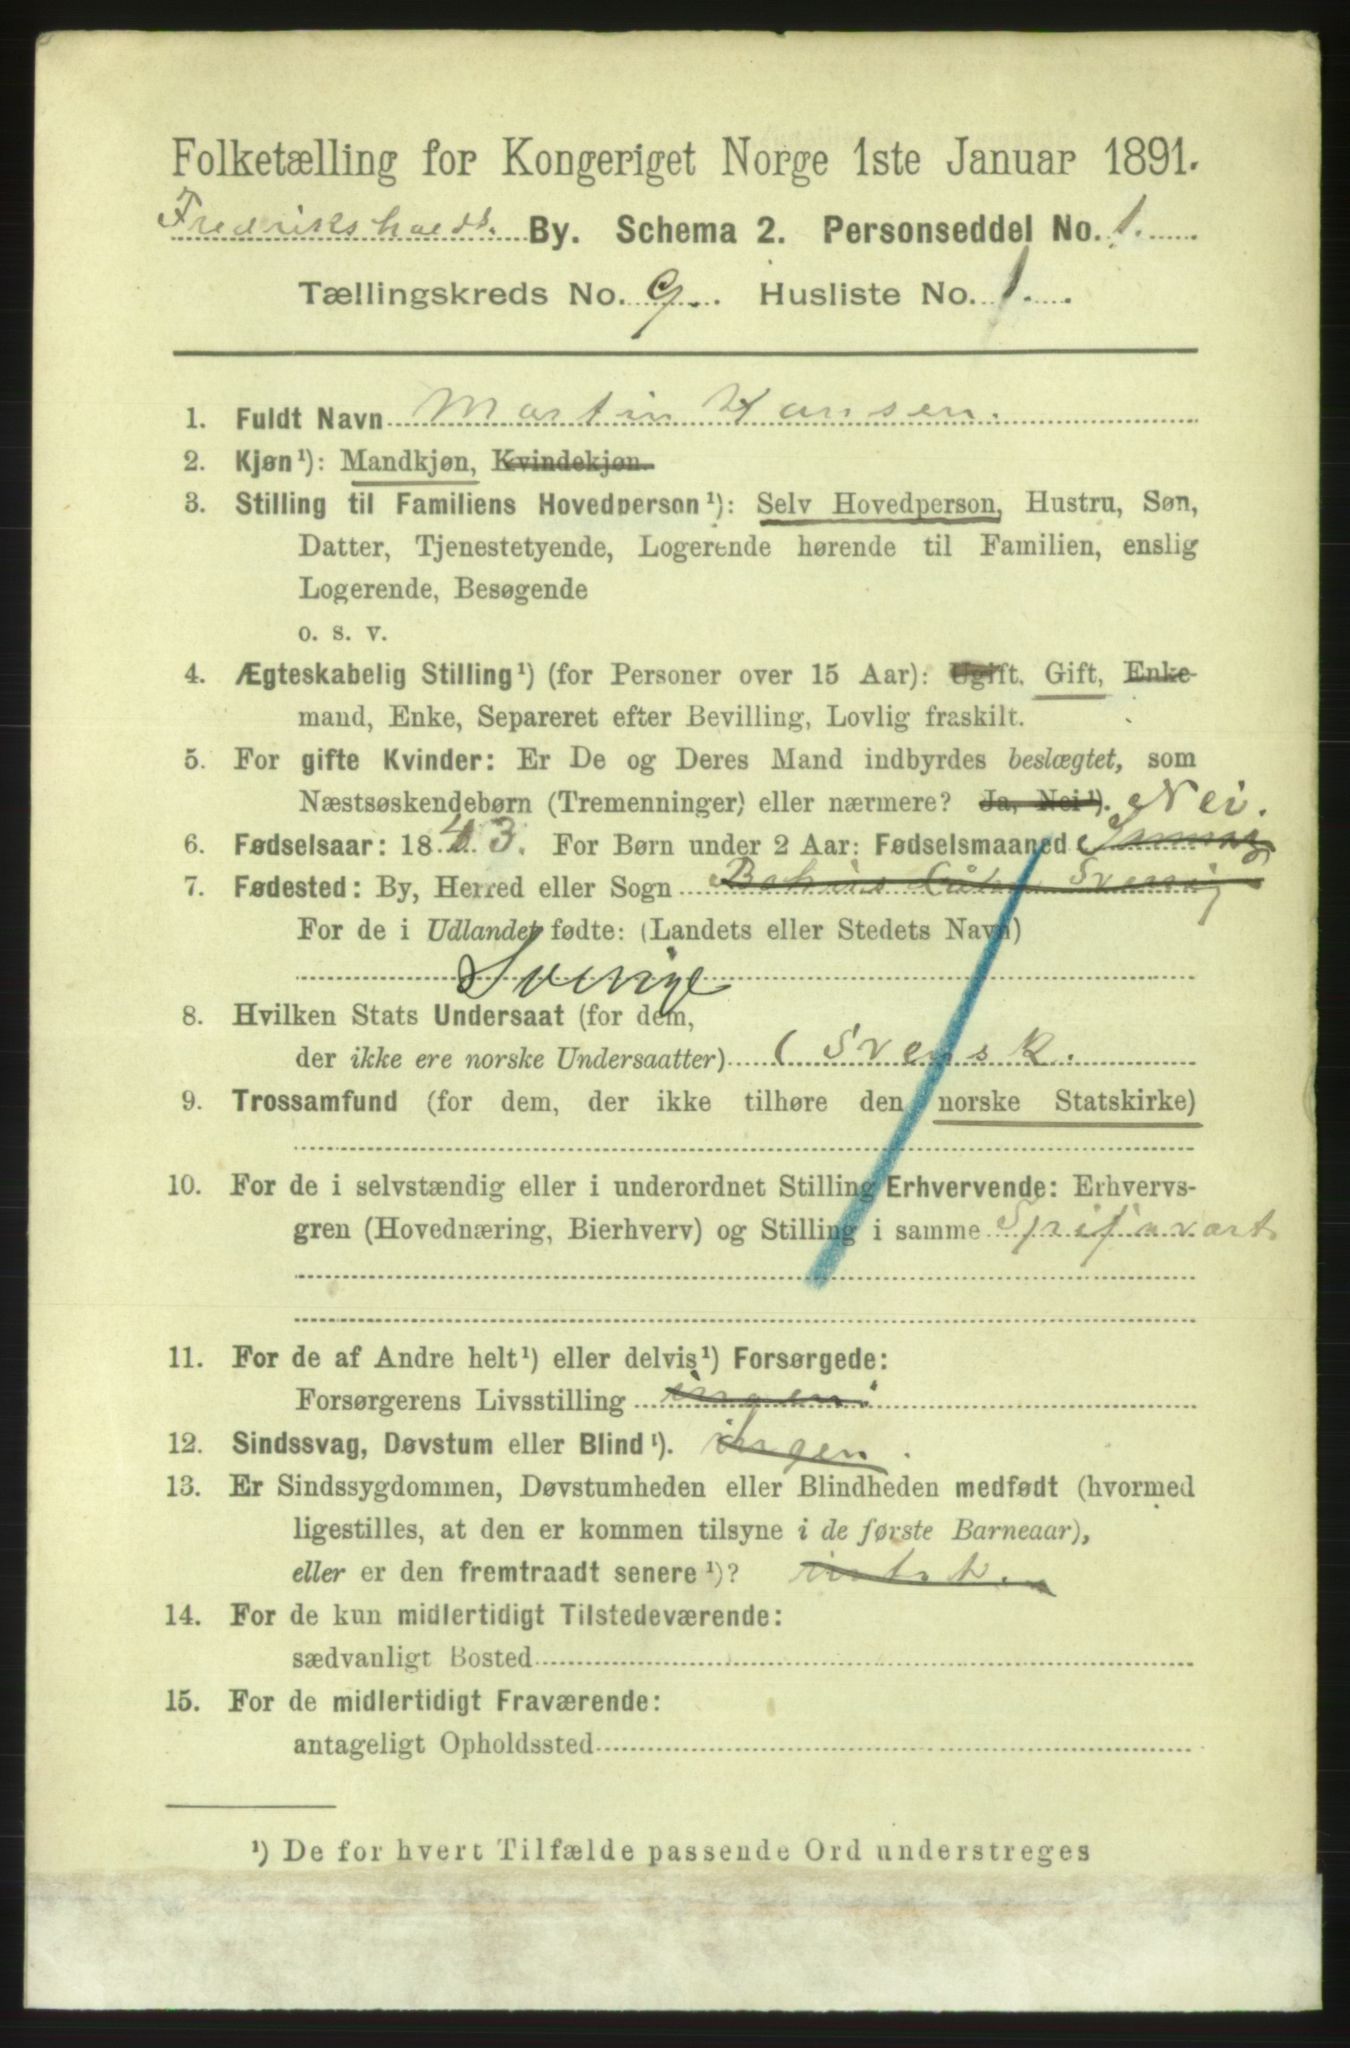 Folketælling for Kongeriget Norge 1ste Januar 1891.
Frederikshald By. Schema 2. Personseddel No. 1.
Tællingskreds No. 9. Husliste No. 1.
1. Fuldt Navn Martin Hansen.
2. Kjøn¹): Mandkjøn, Kvindekjøn.
3. Stilling til Familiens Hovedperson¹): Selv Hovedperson, Hustru, Søn,
Datter, Tjenestetyende, Logerende hørende til Familien, enslig
Logerende, Besøgende
o. s. v.
4. Ægteskabelig Stilling¹) (for Personer over 15 Aar): Ugift, Gift, Enke-
mand, Enke, Separeret efter Bevilling, Lovlig fraskilt.
5. For gifte Kvinder: Er De og Deres Mand indbyrdes beslægtet, som
Næstsøskendebørn (Tremenninger) eller nærmere? Ja, Nei¹). Nei.
6. Fødselsaar: 1843. For Børn under 2 Aar: Fødselsmaaned
7. Fødested: By, Herred eller Sogn Bohus Sverrig
For de i Udlandet fødte: (Landets eller Stedets Navn)
Sverige
8. Hvilken Stats Undersaat (for dem,
der ikke ere norske Undersaatter) (Svensk.
9. Trossamfund (for dem, der ikke tilhøre den norske Statskirke)
10. For de i selvstændig eller i underordnet Stilling Erhvervende: Erhvervs-
gren (Hovednæring, Bierhverv) og Stilling i samme
11. For de af Andre helt¹) eller delvis¹) Forsørgede:
Forsørgerens Livsstilling ingen.
12. Sindssvag, Døvstum eller Blind¹). ingen.
13. Er Sindssygdommen, Døvstumheden eller Blindheden medfødt (hvormed
ligestilles, at den er kommen tilsyne i de første Barneaar),
eller er den fremtraadt senere¹)?
14. For de kun midlertidigt Tilstedeværende:
sædvanligt Bosted
15. For de midlertidigt Fraværende:
antageligt Opholdssted
¹) De for hvert Tilfælde passende Ord understreges